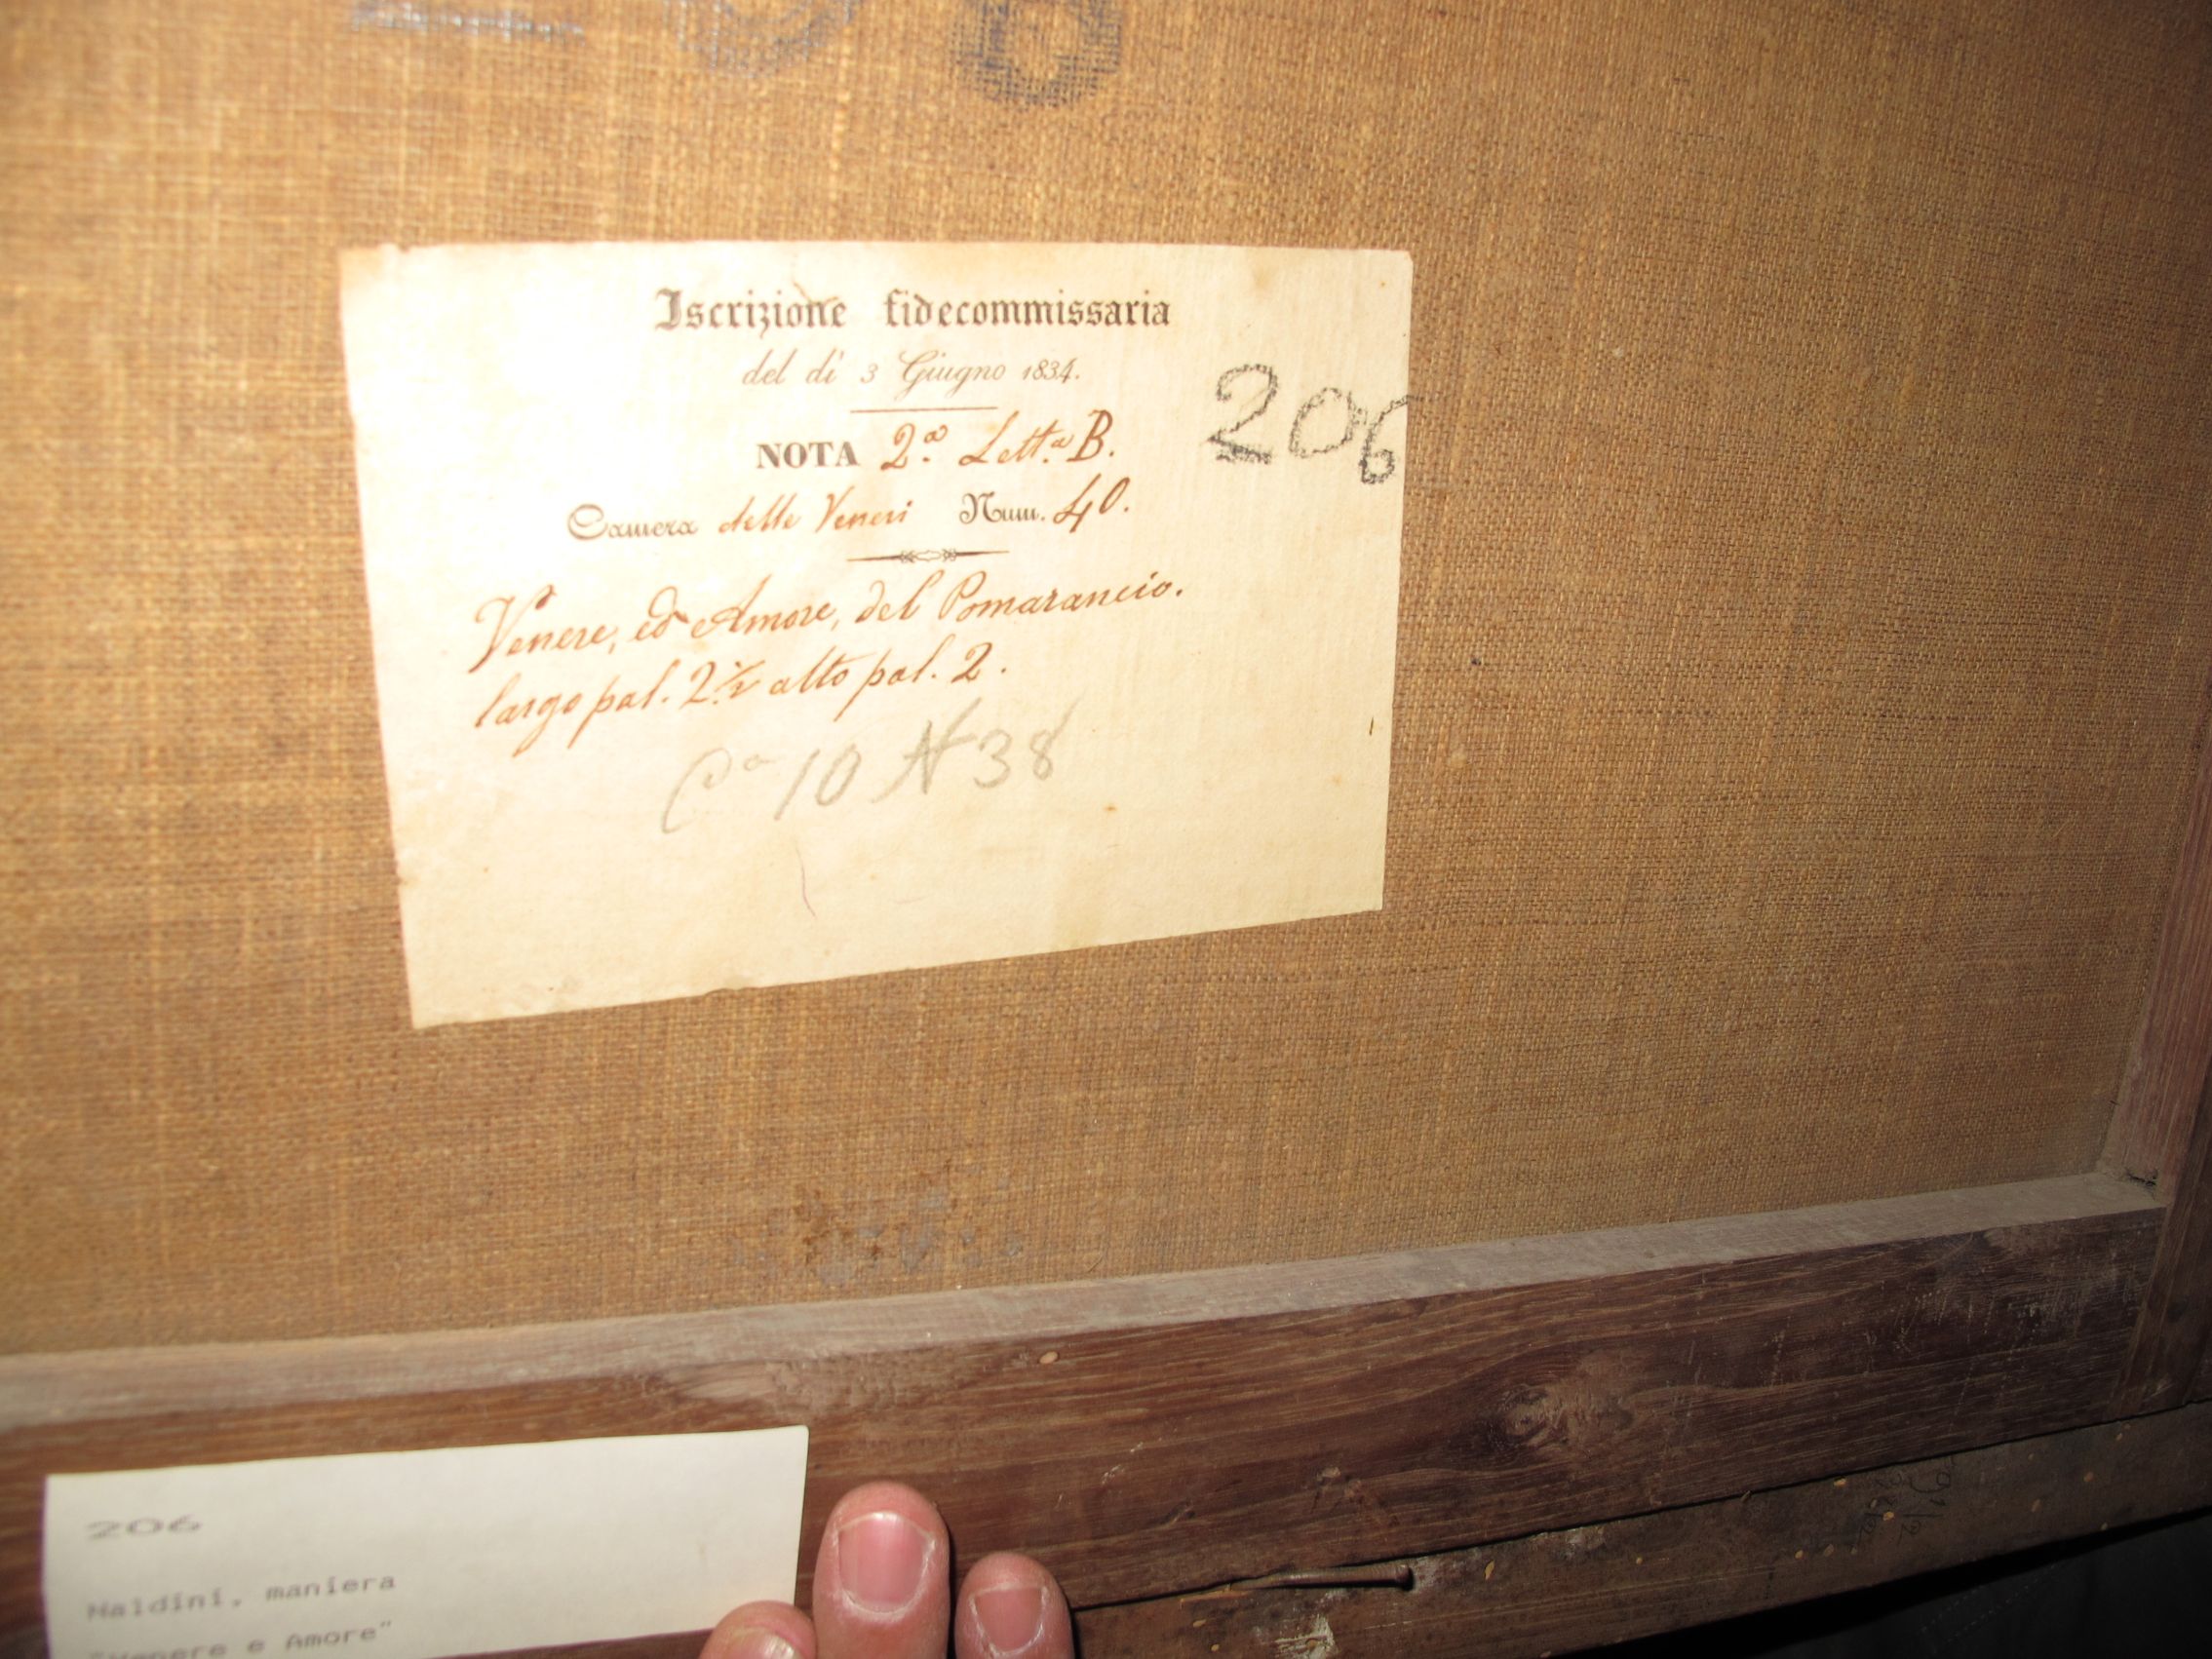 Iscrizione fidecommissaria
del dì 3 Giugno 1834.
206
NOTA 2.ª Lett.ª B.
Camera delle Veneri Num. 40.
Venere, ed Amore, del Pomarancio.
largo pal. 2.½ alto pal. 2.
Cª 10 N 38
206
Naldini, maniera
"Venere e Amore"